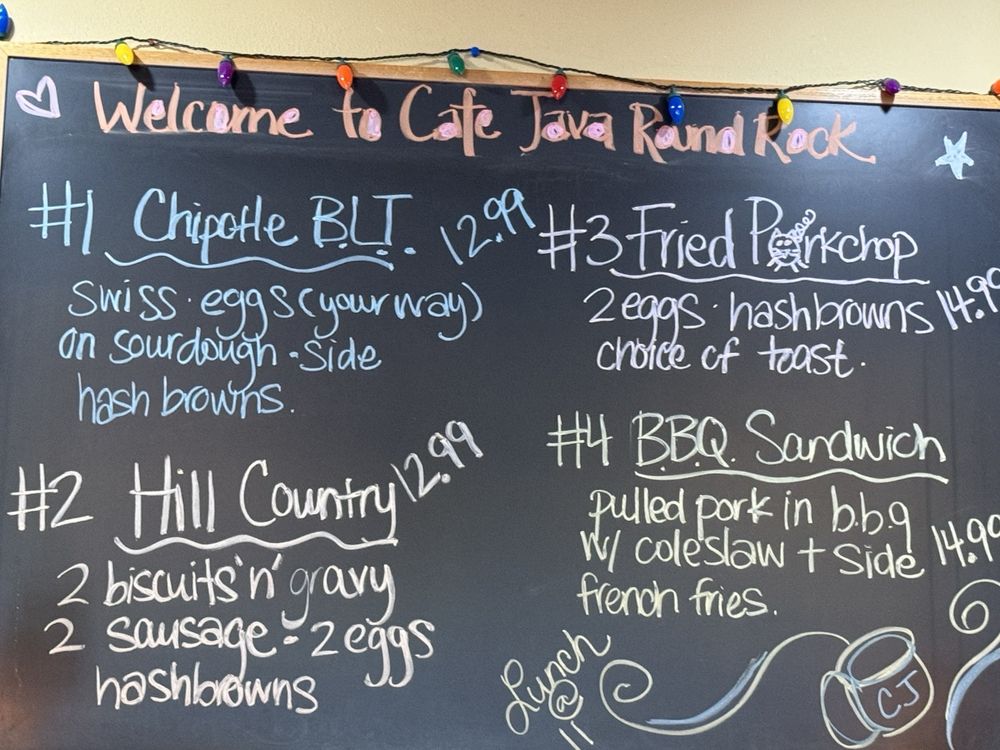 Welcome to Cafe Java Round Rock
#1 Chipotle B.L.T. 12.99
Swiss · eggs (your way)
on sourdough - side
hash browns.
#2 Hill Country 12.99
2 biscuits 'n' gravy
2 sausage - 2 eggs
hashbrowns
#3 Fried Porkchop
2 eggs · hashbrowns 14.99
choice of toast.
#4 B.B.Q. Sandwich
pulled pork in b.b.q
w/ coleslaw + side 14.99
french fries.
Lunch
@
11
CJ